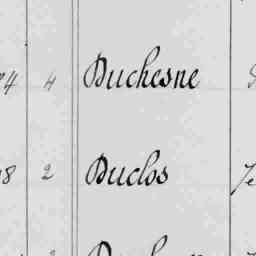 4 4 Duchesne
8 2 Duclos Je